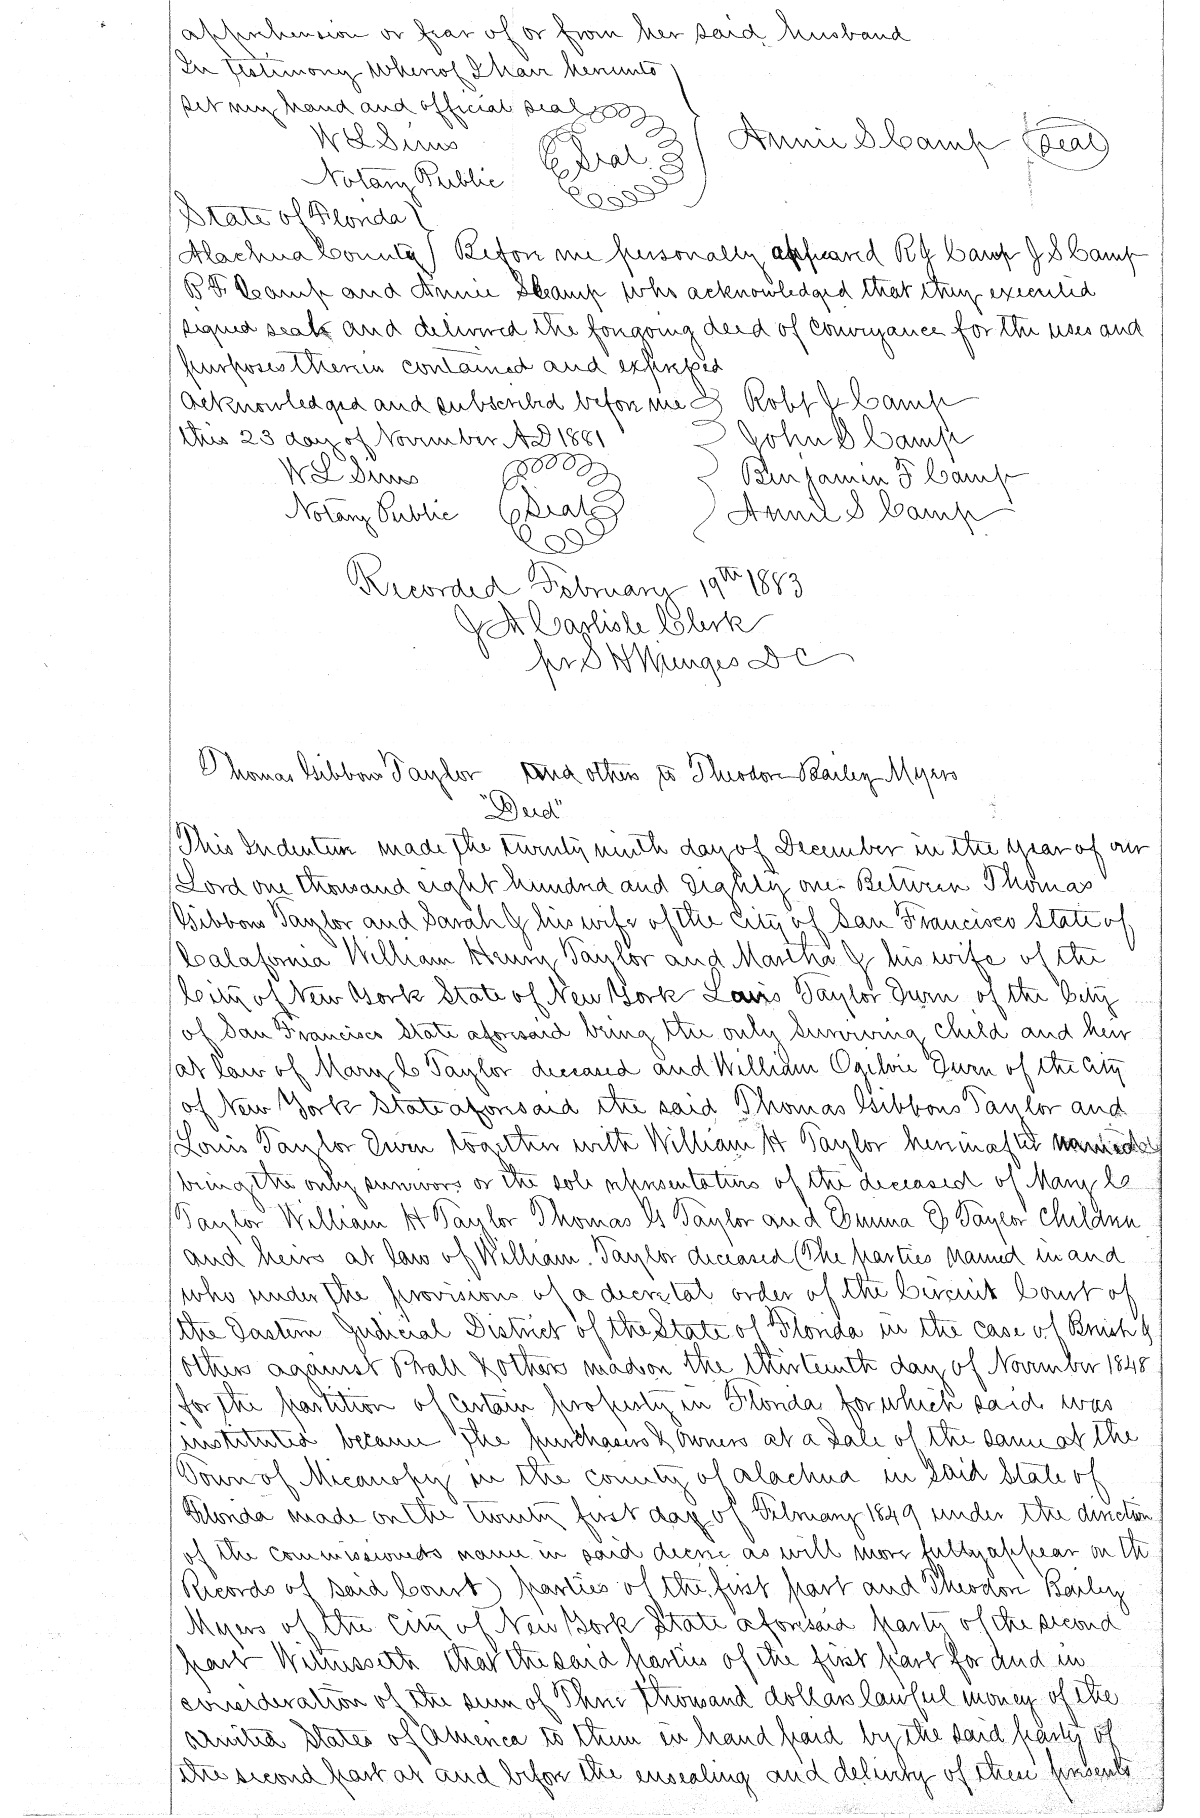 apprehension or fear of or from her said husband
In Testimony Whereof I have hereunto
set my hand and official seal
W L Sims
Seal
Annie S Camp
Seal
Notary Public
State of Florida
Alachua County Before me personally appeared R J Camp J S Camp
B F Camp and Annie S Camp who acknowledged that they executed
signed seal and delivered the foregoing deed of conveyance for the uses and
purposes therein contained and expressed
acknowledged and subscribed before me
Robt J Camp
this 23 day of November AD 1881
John S Camp
W L Sims
Benjamin F Camp
Notary Public
Seal
Annie S Camp
Recorded February 19th 1883
J A Carlisle Clerk
pr S H Wienges D C
Thomas Gibbons Taylor and others to Theodore Bailey Myers
"Deed"
This Indenture made the twenty ninth day of December in the year of our
Lord one thousand eight hundred and Eighty one. Between Thomas
Gibbons Taylor and Sarah J his wife of the City of San Francisco State of
Calafornia William Henry Taylor and Martha J his wife of the
City of New York State of New York Louis Taylor of the City
of San Francisco State aforesaid being the only surviving child and heir
at law of Mary C Taylor deceased and William Ogilvie of the City
of New York State aforesaid the said Thomas Gibbons Taylor and
Louis Taylor together with William H Taylor hereinafter named
being the only survivors or the sole representatives of the deceased of Mary C
Taylor William H Taylor Thomas G Taylor and Emma E Taylor children
and heirs at law of William. Taylor deceased (The parties named in and
who under the provisions of a decretal order of the Circuit Court of
the Eastern Judicial District of the State of Florida in the case of Brush &
others against Prall & others made on the thirteenth day of November 1848
for the partition of certain property in Florida for which said was
instituted became the purchasers & owners at a sale of the same at the
Town of Micanopy in the county of alachua in said State of
Florida made on the twenty first day of February 1849 under the direction
of the commissioneds name in said decree as will more fully appear on th
Records of said Court) parties of the first part and Theodore Bailey
Myers of the City of New York State aforesaid party of the second
part Witnesseth that the said parties of the first part for and in
consideration of the sum of Three thousand dollars lawful money of the
united States of America to them in hand paid by the said party of
the second part at and before the ensealing and delivery of these presents